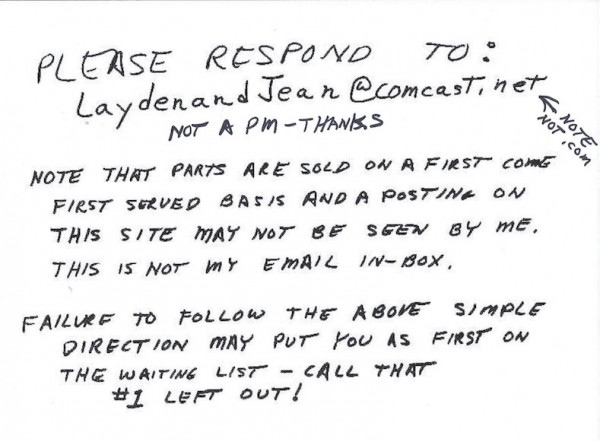 PLEASE RESPOND TO:
LaydenandJean@comcast.net
NOTE
NOT .COM
NOT A PM - THANKS
NOTE THAT PARTS ARE SOLD ON A FIRST COME
FIRST SERVED BASIS AND A POSTING ON
THIS SITE MAY NOT BE SEEN BY ME.
THIS IS NOT MY EMAIL IN-BOX.
FAILURE TO FOLLOW THE ABOVE SIMPLE
DIRECTION MAY PUT YOU AS FIRST ON
THE WAITING LIST - CALL THAT
#1 LEFT OUT!